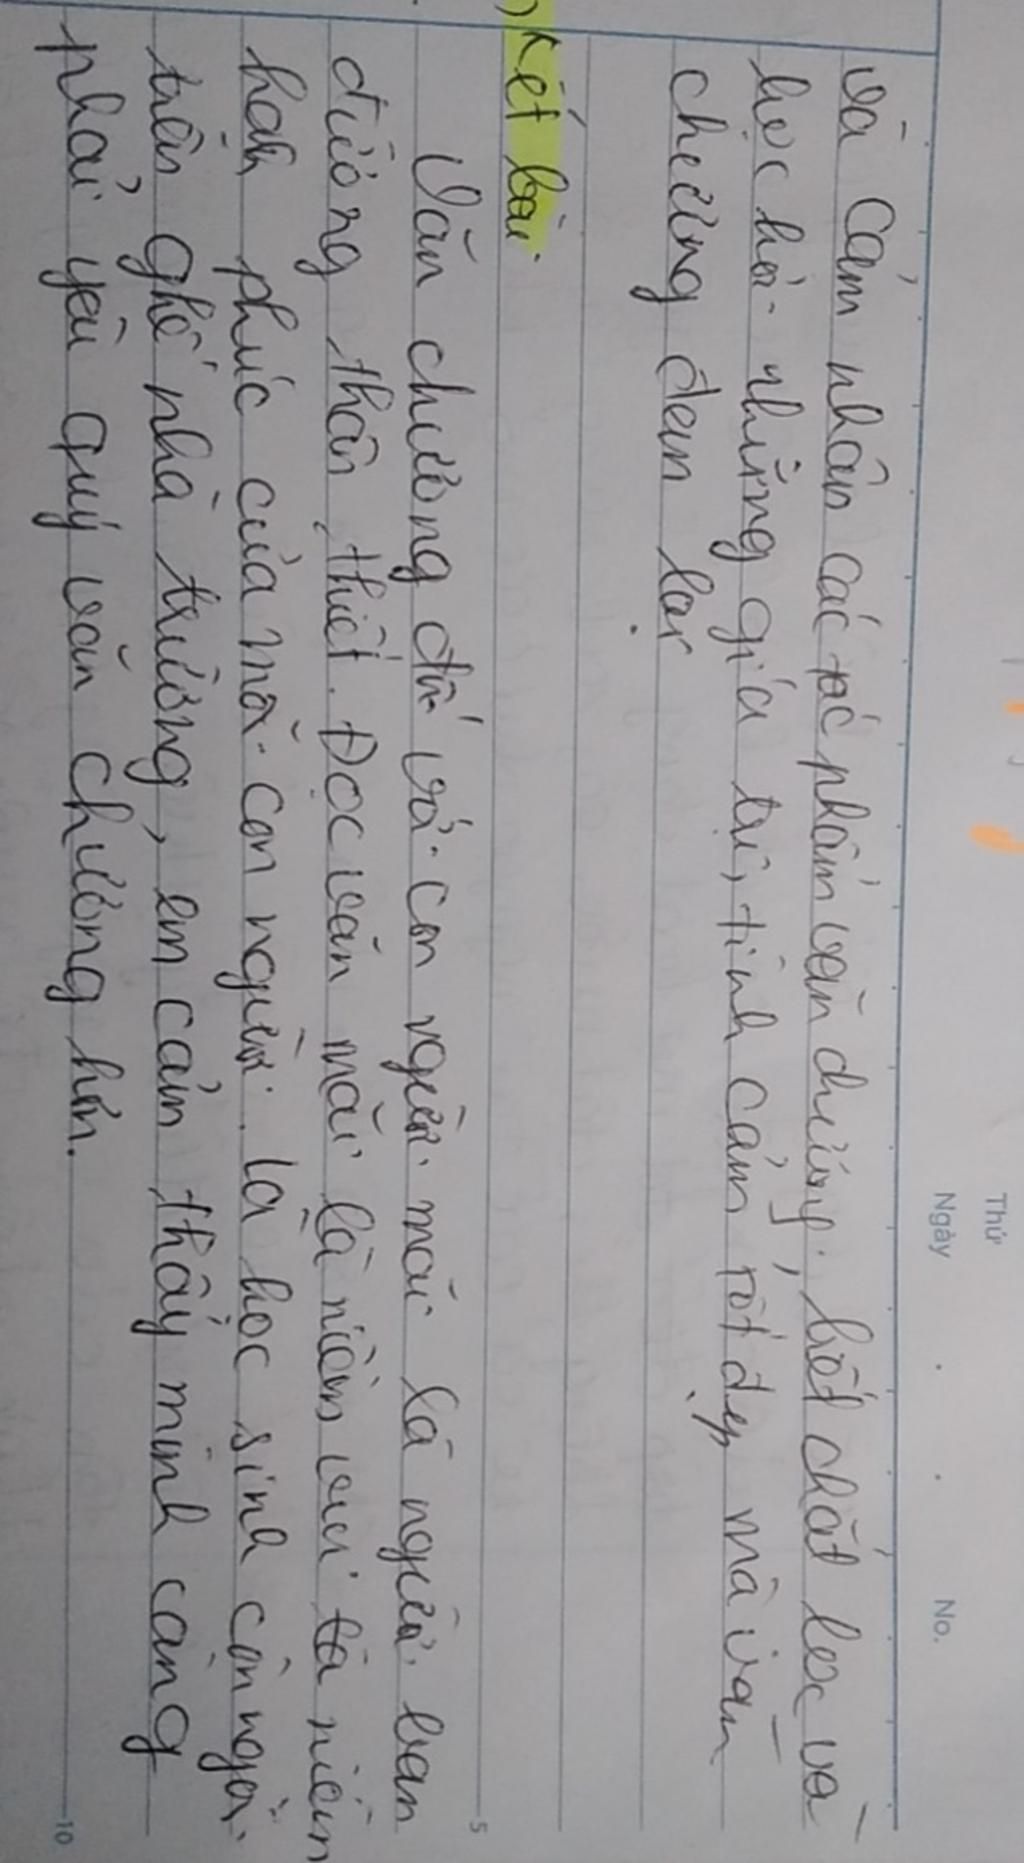 Thứ
Ngày . . No.
và cảm nhận các tác phẩm văn chương, biết chắt lọc và
học hỏi những giá trị, tình cảm tốt đẹp mà văn
chương đem lại
) Kết bài
Văn chương đối với con người mãi là người bạn
đường thân thiết. Đọc văn mãi là niềm vui là niềm
hạnh phúc của mỗi con người. Là học sinh còn ngồi
trên ghế nhà trường, em cảm thấy mình càng
phải yêu quý văn chương hơn.
5
10